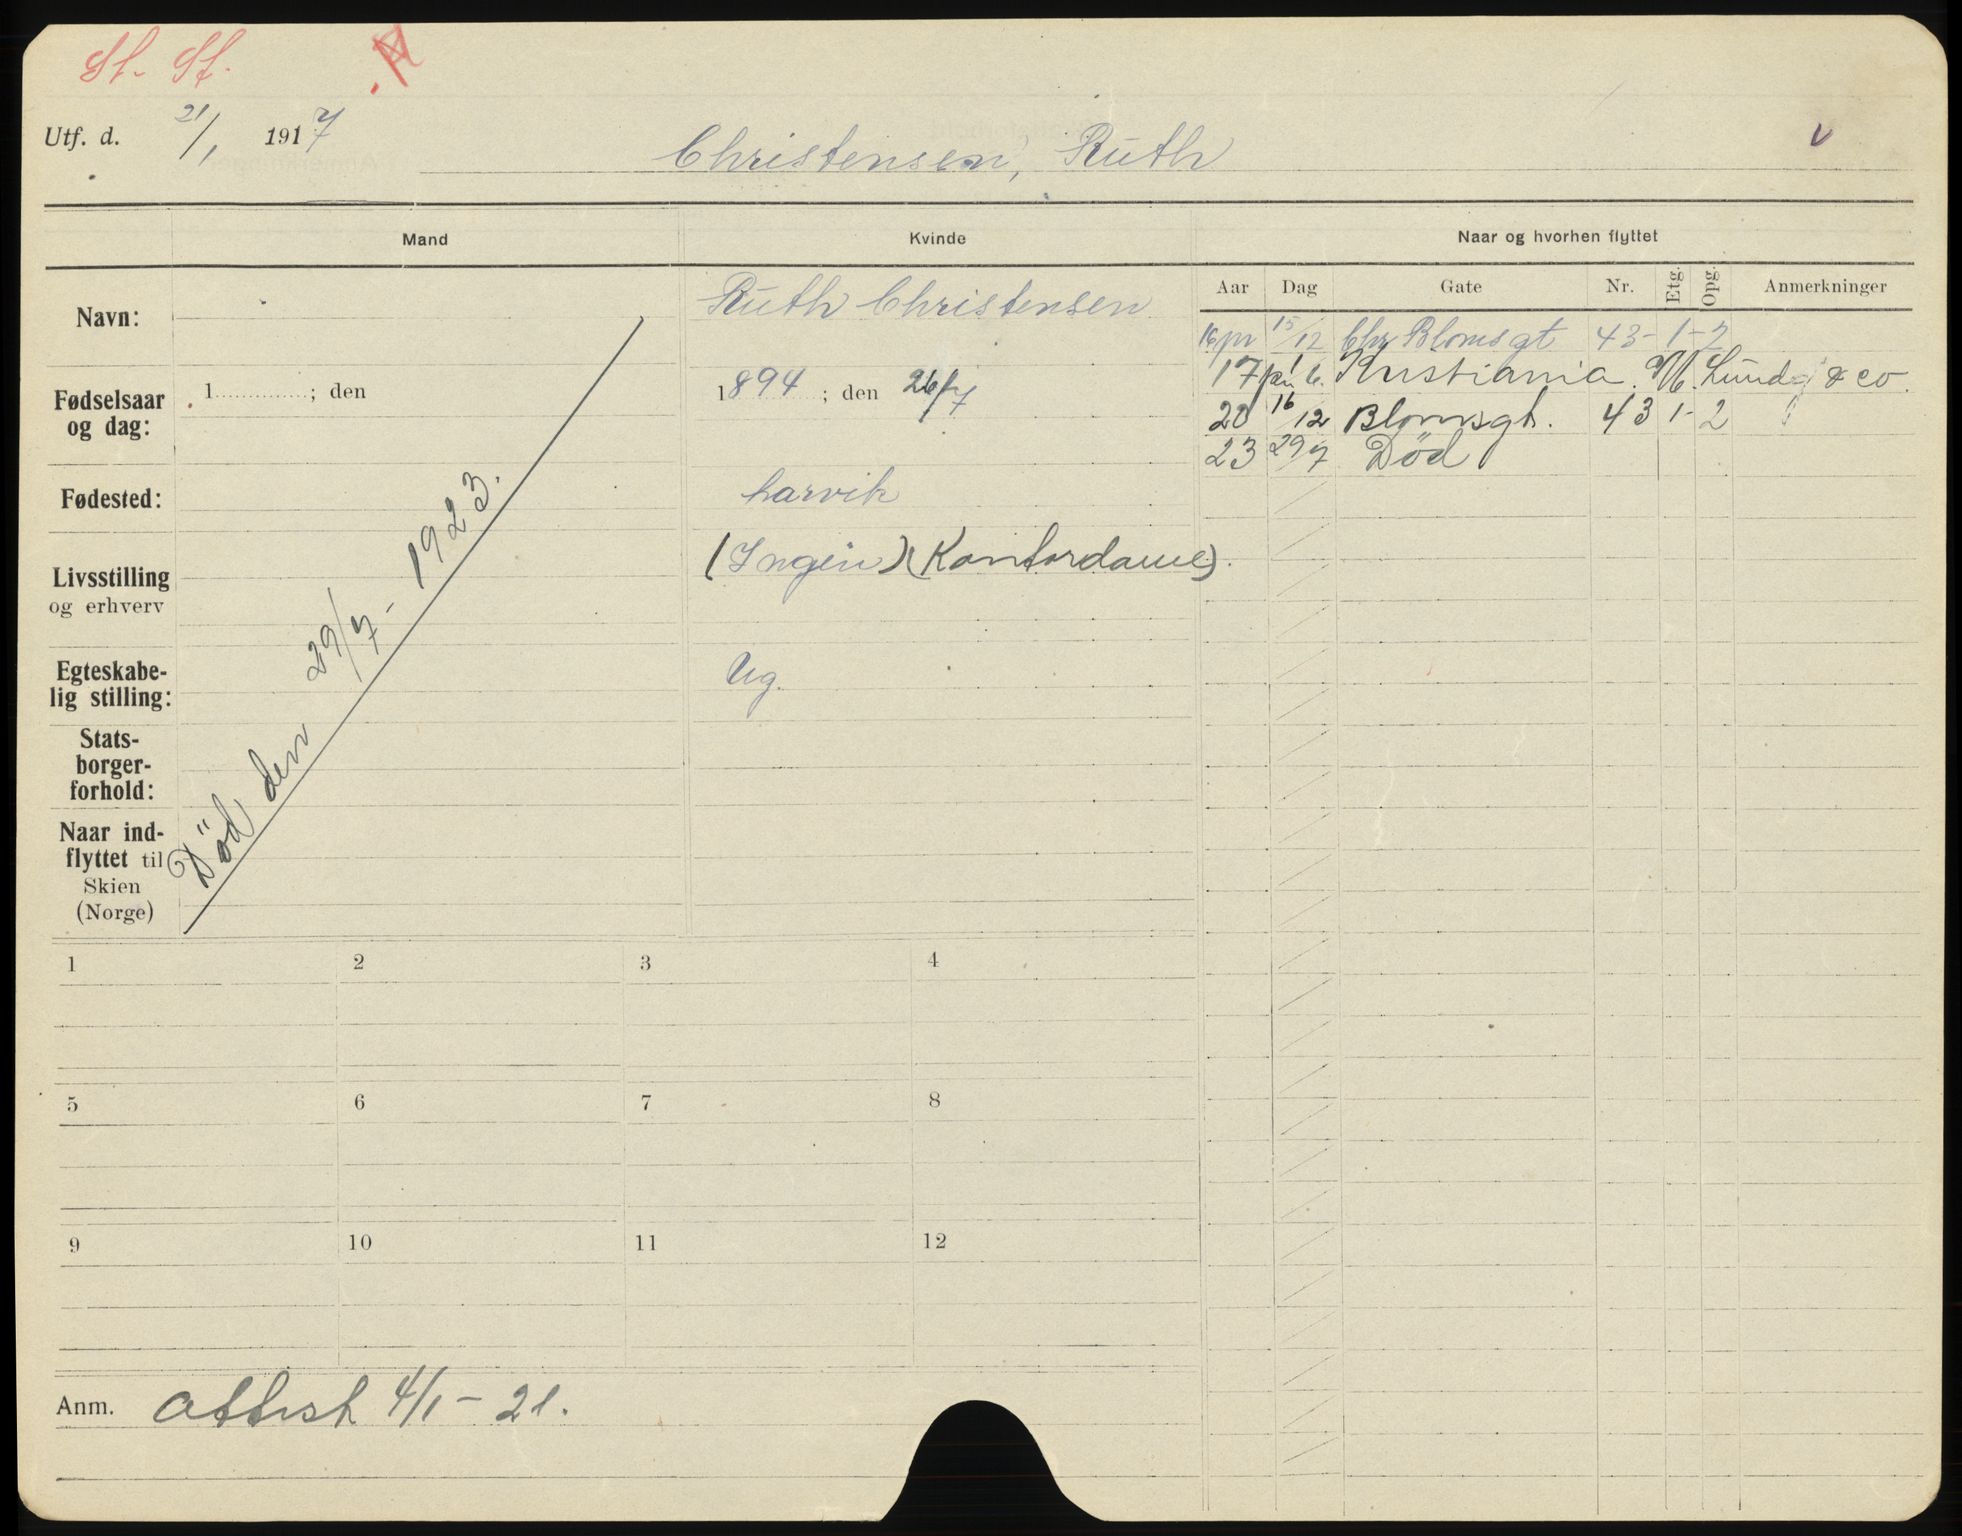 St. St.
Utf. d. 21/1 1917
Christensen, Ruth
Mand Kvinde Naar og hvorhen flyttet
Aar Dag Gate Nr. Etg. Opg. Anmerkninger
Navn: Ruth Christensen
16 pr 15/12 Chr Blomsgt 43 - 1 - 2
17 1/6. Kristiania. Lund & co.
Fødselsaar og dag: 1 ; den 1894 ; den 26/7
20 16/12 Blomsgt. 43 1 - 2
23 29/7 Död
Fødested: Larvik
Livsstilling og erhverv (Ingen) (Kontordame).
Egteskabe-
lig stilling: Ug.
Stats-
borger-
forhold:
Naar ind-
flyttet til
Skien
(Norge)
Död den 29/7 - 1923.
1 2 3 4
5 6 7 8
9 10 11 12
Anm. Attest 4/1 - 21.